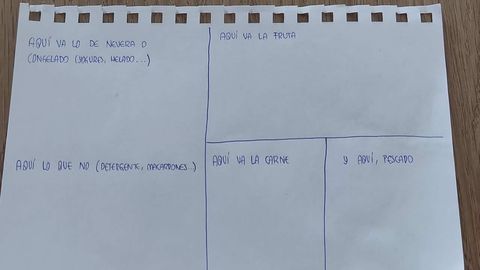 AQUÍ VA LO DE NEVERA O
CONGELADO (YOGURES, HELADO...)
AQUÍ LO QUE NO (DETERGENTE, MACARRONES..)
AQUÍ VA LA FRUTA
AQUÍ VA LA CARNE
Y AQUÍ, PESCADO